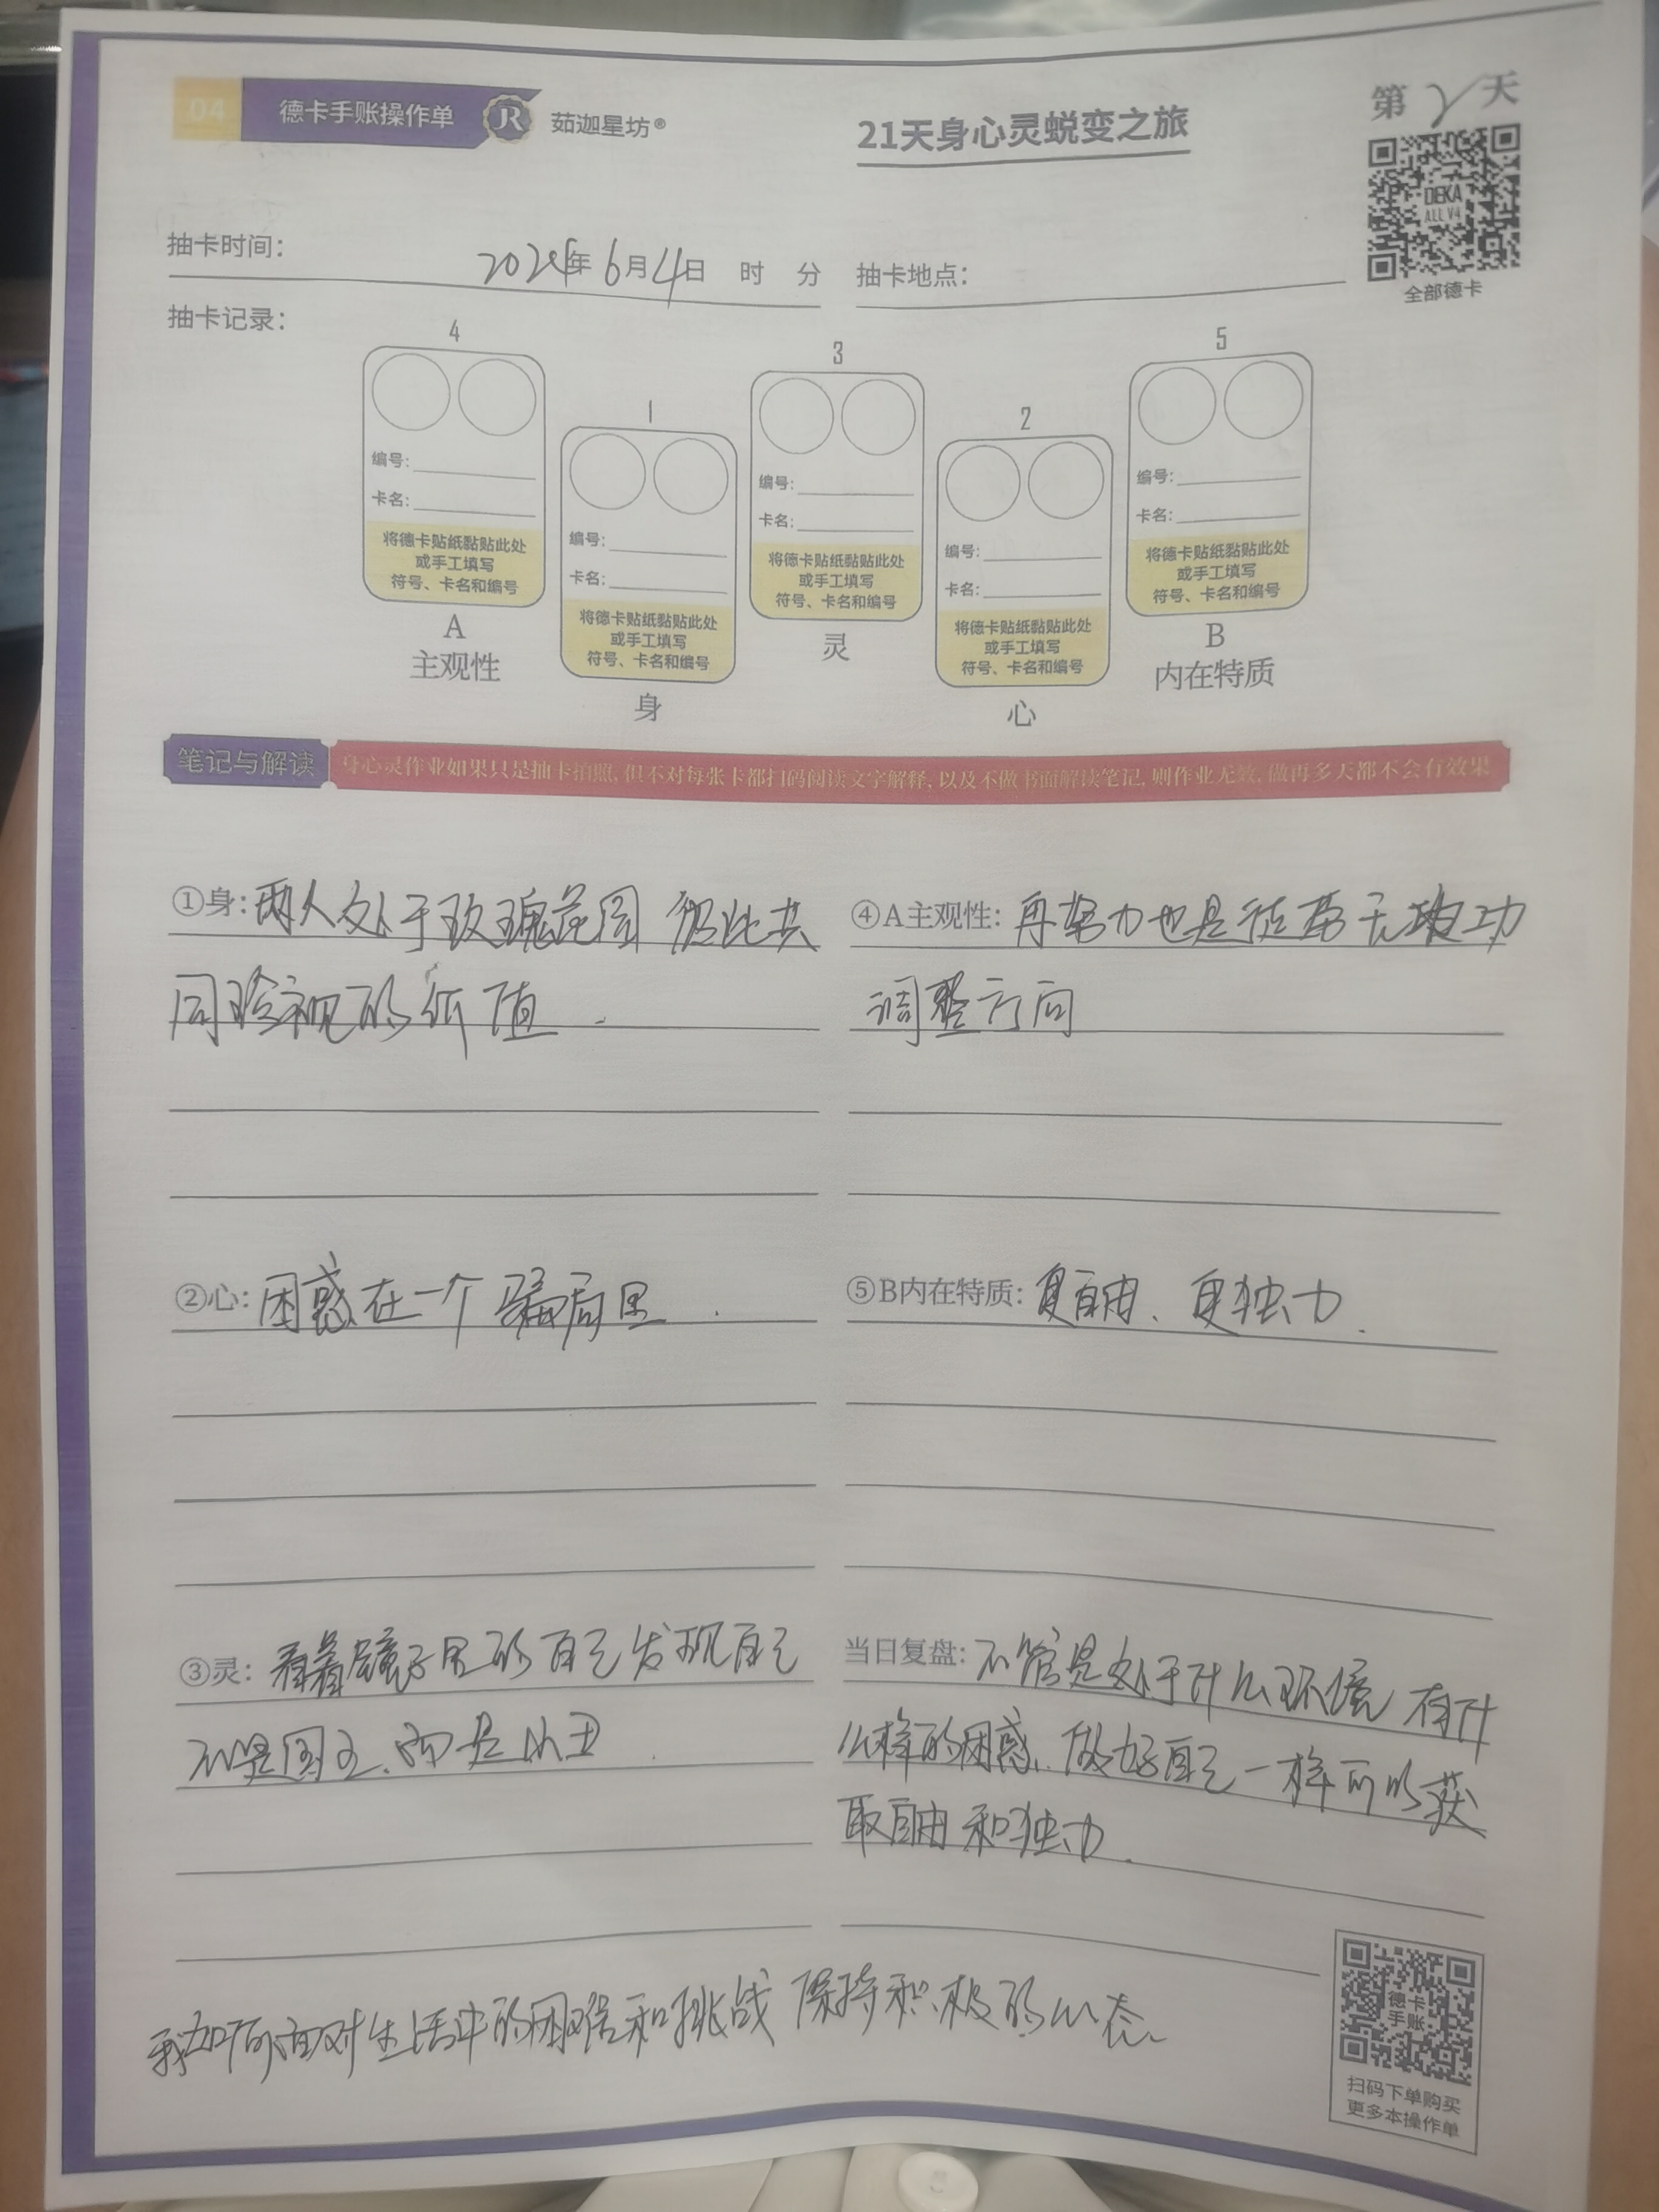 04 德卡手账操作单 JR 茹迦星坊®
21天身心灵蜕变之旅
第 2 天
DEKA
ALL V4
全部德卡
抽卡时间： 年6月4日 时 分 抽卡地点：
抽卡记录：
4
编号：
卡名：
将德卡贴纸黏贴此处
或手工填写
符号、卡名和编号
A
主观性
1
编号：
卡名：
将德卡贴纸黏贴此处
或手工填写
符号、卡名和编号
身
3
编号：
卡名：
将德卡贴纸黏贴此处
或手工填写
符号、卡名和编号
灵
2
编号：
卡名：
将德卡贴纸黏贴此处
或手工填写
符号、卡名和编号
心
5
编号：
卡名：
将德卡贴纸黏贴此处
或手工填写
符号、卡名和编号
B
内在特质
笔记与解读 身心灵作业如果只是抽卡拍照，但不对每张卡都扫码阅读文字解释，以及不做书面解读笔记，则作业无效，做再多天都不会有效果
①身：两人处于玫瑰花园 彼此共
同珍视的价值.
④A主观性：再努力也是徒劳无功
调整方向
②心：困惑在一个骗局里.
⑤B内在特质：更自由、更独立.
③灵：看着镜子里的自己发现自己
不是国王、而是小丑.
当日复盘：不管是处于什么环境 有什
么样的困惑、做好自己一样可以获
取自由和独立.
我如何面对生活中的困难和挑战 保持积极的心态
德卡
手账
扫码下单购买
更多本操作单